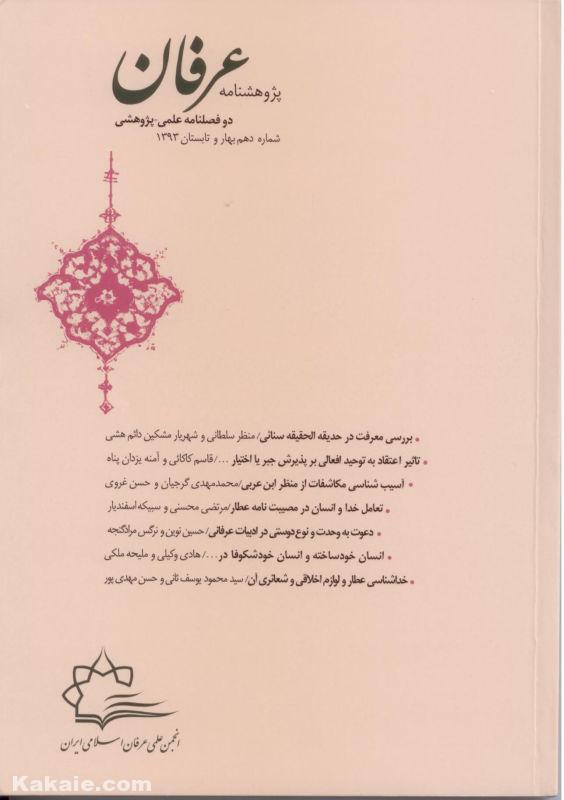 پژوهشنامه
عرفان
دو فصلنامه علمی-پژوهشی
شماره دهم بهار و تابستان ۱۳۹۳
• بررسی معرفت در حدیقه الحقیقه سنائی/ منظر سلطانی و شهریار مشکین دائم هشی
• تاثیر اعتقاد به توحید افعالی بر پذیرش جبر یا اختیار .../ قاسم کاکائی و آمنه یزدان پناه
• آسیب شناسی مکاشفات از منظر ابن عربی/محمدمهدی گرجیان و حسن غروی
• تعامل خدا و انسان در مصیبت نامه عطار/مرتضی محسنی و سبیکه اسفندیار
• دعوت به وحدت و نوع‌دوستی در ادبیات عرفانی/ حسین نوین و نرگس مرادگنجه
• انسان خودساخته و انسان خودشکوفا در.../ هادی وکیلی و ملیحه ملکی
• خداشناسی عطار و لوازم اخلاقی و شعائری آن/ سید محمود یوسف ثانی و حسن مهدی پور
انجمن علمی عرفان اسلامی ایران
Kakaie.com